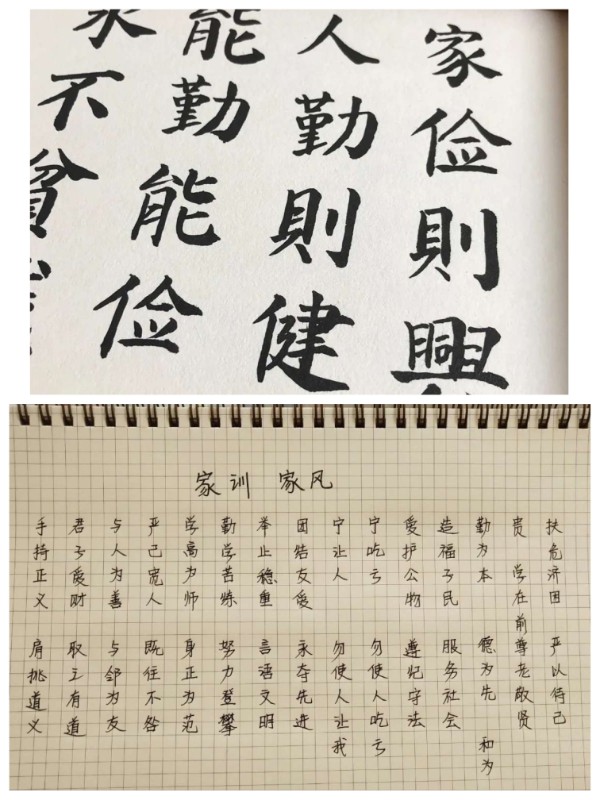 家俭則興
人勤則健
能勤能俭
永不貧
家训 家风
手持正义 肩挑道义
君子爱财 取之有道
与人为善 与邻为友
严己宽人 既往不咎
学高为师 身正为范
勤学苦练 努力登攀
举止稳重 言语文明
团结友爱 永夺先进
宁让人 勿使人让我
宁吃亏 勿使人吃亏
爱护公物 遵纪守法
造福于民 服务社会
勤为本 德为先 和为
贵 学在前尊老敬贤
扶危济困 严以待己